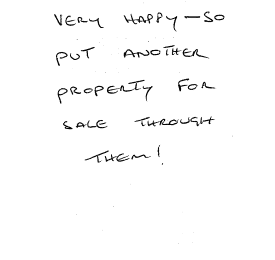 VERY HAPPY — SO
PUT ANOTHER
PROPERTY FOR
SALE THROUGH
THEM!